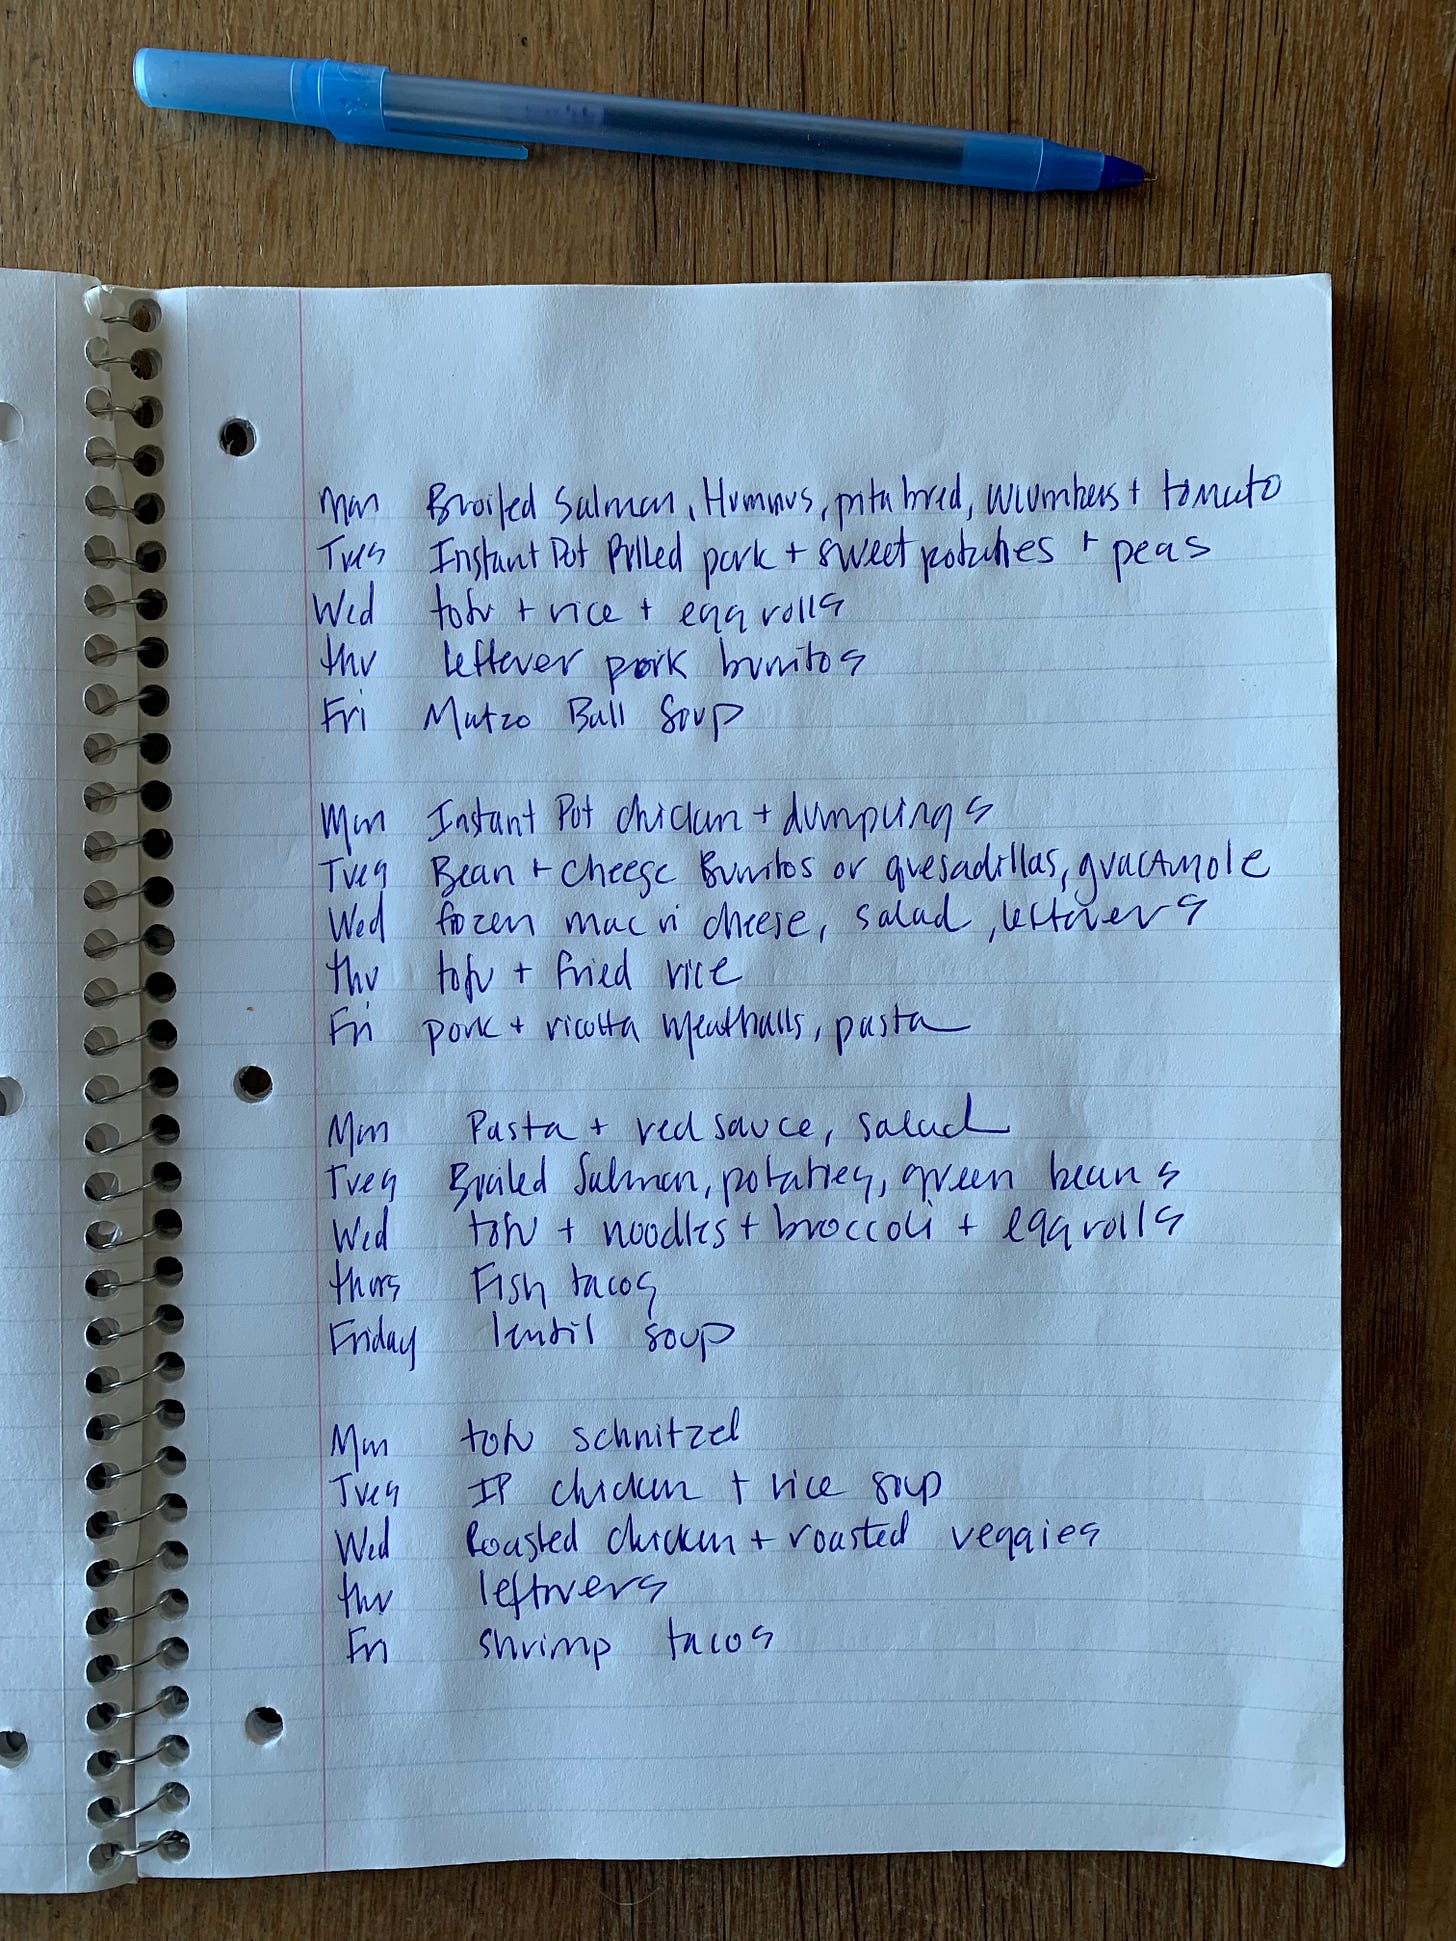 Mon Broiled Salmon, Hummus, pita bred, cucumbers + tomato
Tues Instant Pot Pulled pork + sweet potatoes + peas
Wed tofu + rice + egg rolls
thu leftover pork burritos
Fri Matzo Ball Soup
Mon Instant Pot chicken + dumplings
Tues Bean + cheese Burritos or quesadillas, guacamole
Wed frozen mac n cheese, salad, leftovers
thu tofu + fried rice
Fri pork + ricotta meatballs, pasta
Mon Pasta + red sauce, salad
Tues Broiled Salmon, potatoes, green beans
Wed tofu + noodles + broccoli + egg rolls
thurs Fish tacos
Friday lentil soup
Mon tofu schnitzel
Tues IP chicken + rice soup
Wed Roasted chicken + roasted veggies
thu leftovers
Fri shrimp tacos